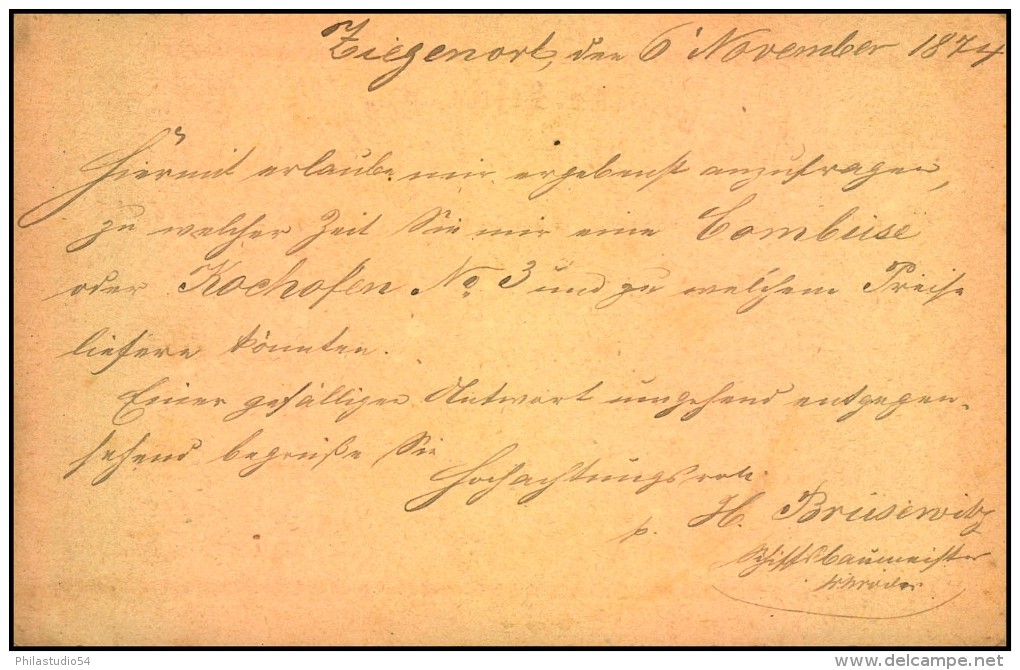 Ziegenort, den 6 November 1874
Hiermit erlaube mir ergebenst anzufragen,
zu welcher Zeit Sie mir eine Combeise
oder Kochofen No 3 und zu welchem Preise
liefern könnten.
Einer gefälligen Antwort umgehend entgegen-
sehend begrüße Sie
Hochachtungsvoll
p. H. Brüsewitz
Schiffsbaumeister
Schröder
Philastudio54
delcampe.net